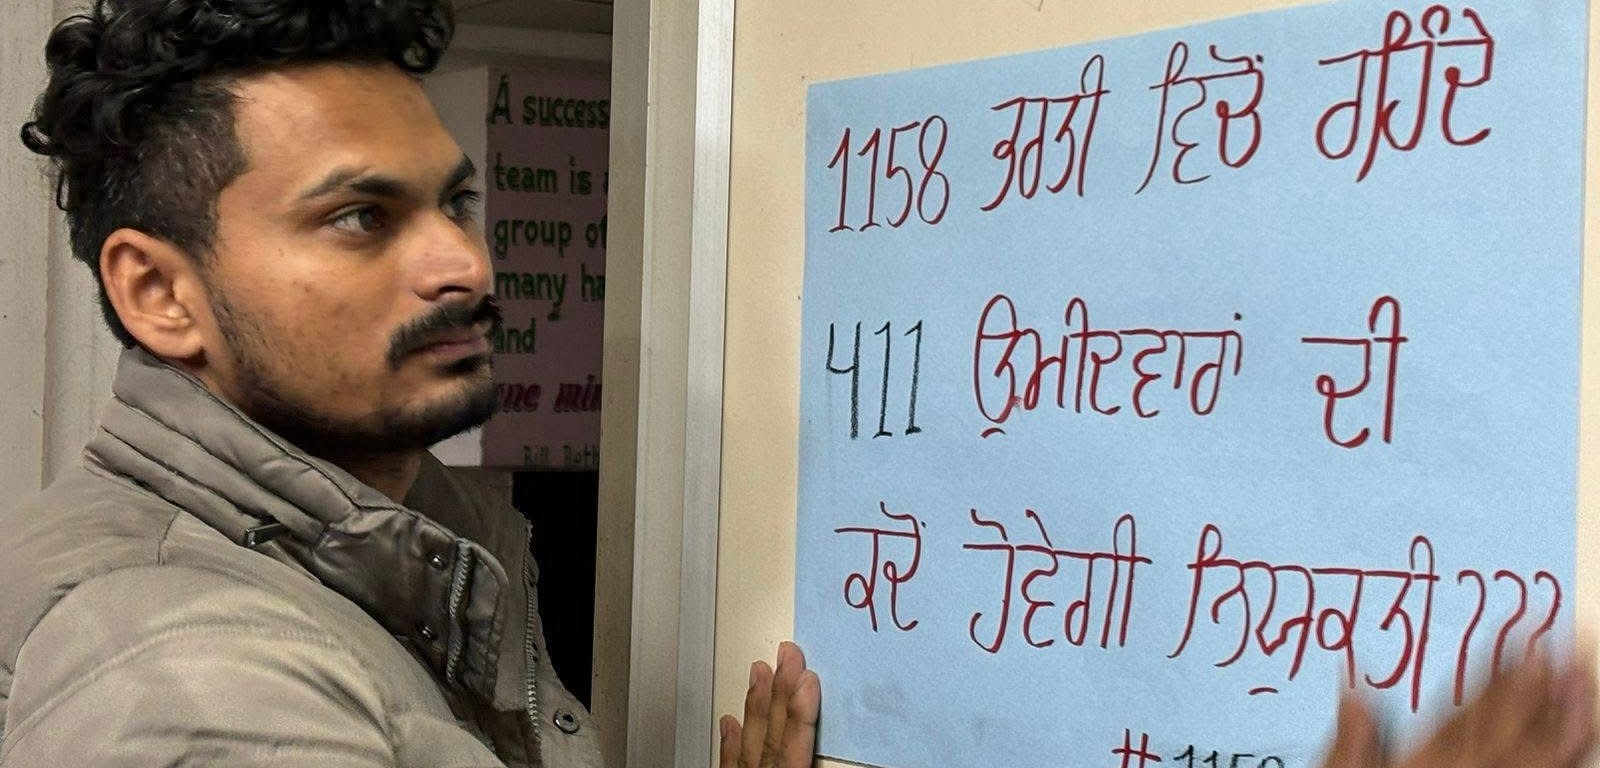 A success
team is
group of
many ha
and
one min
Bill Beth
1158 ਭਰਤੀ ਵਿਚੋਂ ਰਹਿੰਦੇ
411 ਉਮੀਦਵਾਰਾਂ ਦੀ
ਕਦੋਂ ਹੋਵੇਗੀ ਨਿਯੁਕਤੀ ???
#1158